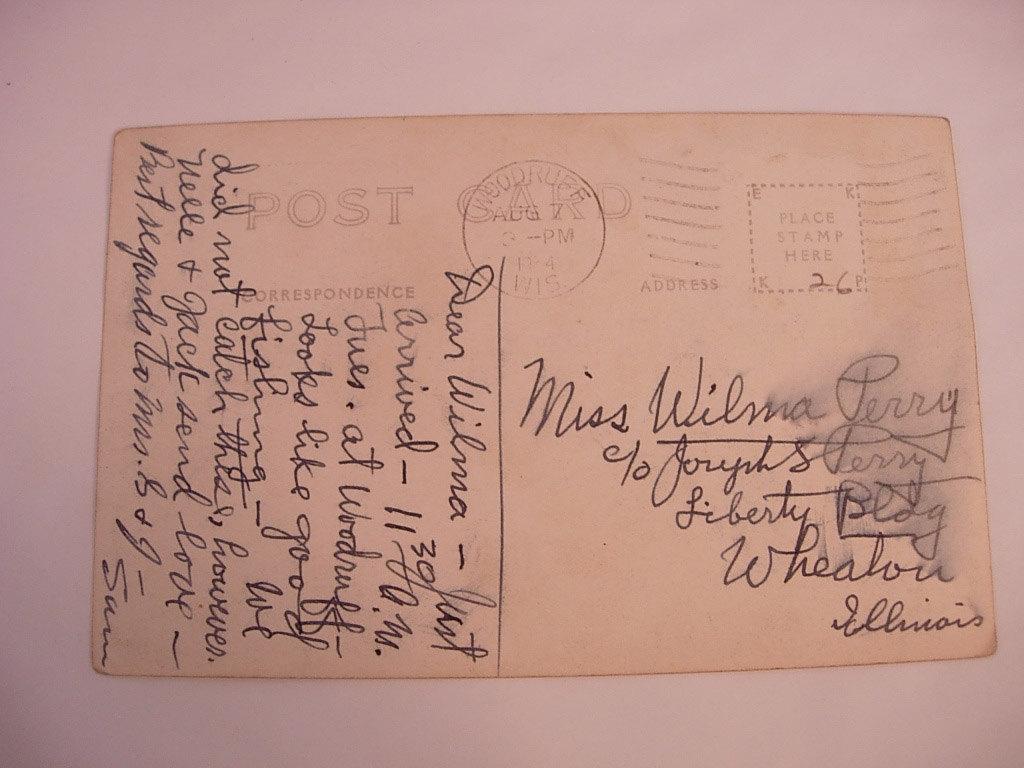 POST CARD
WOODRUFF
AUG 7
3 -PM
1934
WIS
CORRESPONDENCE
ADDRESS
PLACE
STAMP
HERE
E K
K P
26
Dear Wilma - Just
arrived - 11:30 A.M.
Tues. at Woodruff -
Looks like good
fishing - We
did not catch this, however.
Nelle & Jack send love -
Best regards to Mrs. S & J
Sam
Miss Wilma Perry
c/o Joseph S Perry
Liberty Bldg
Wheaton
Illinois